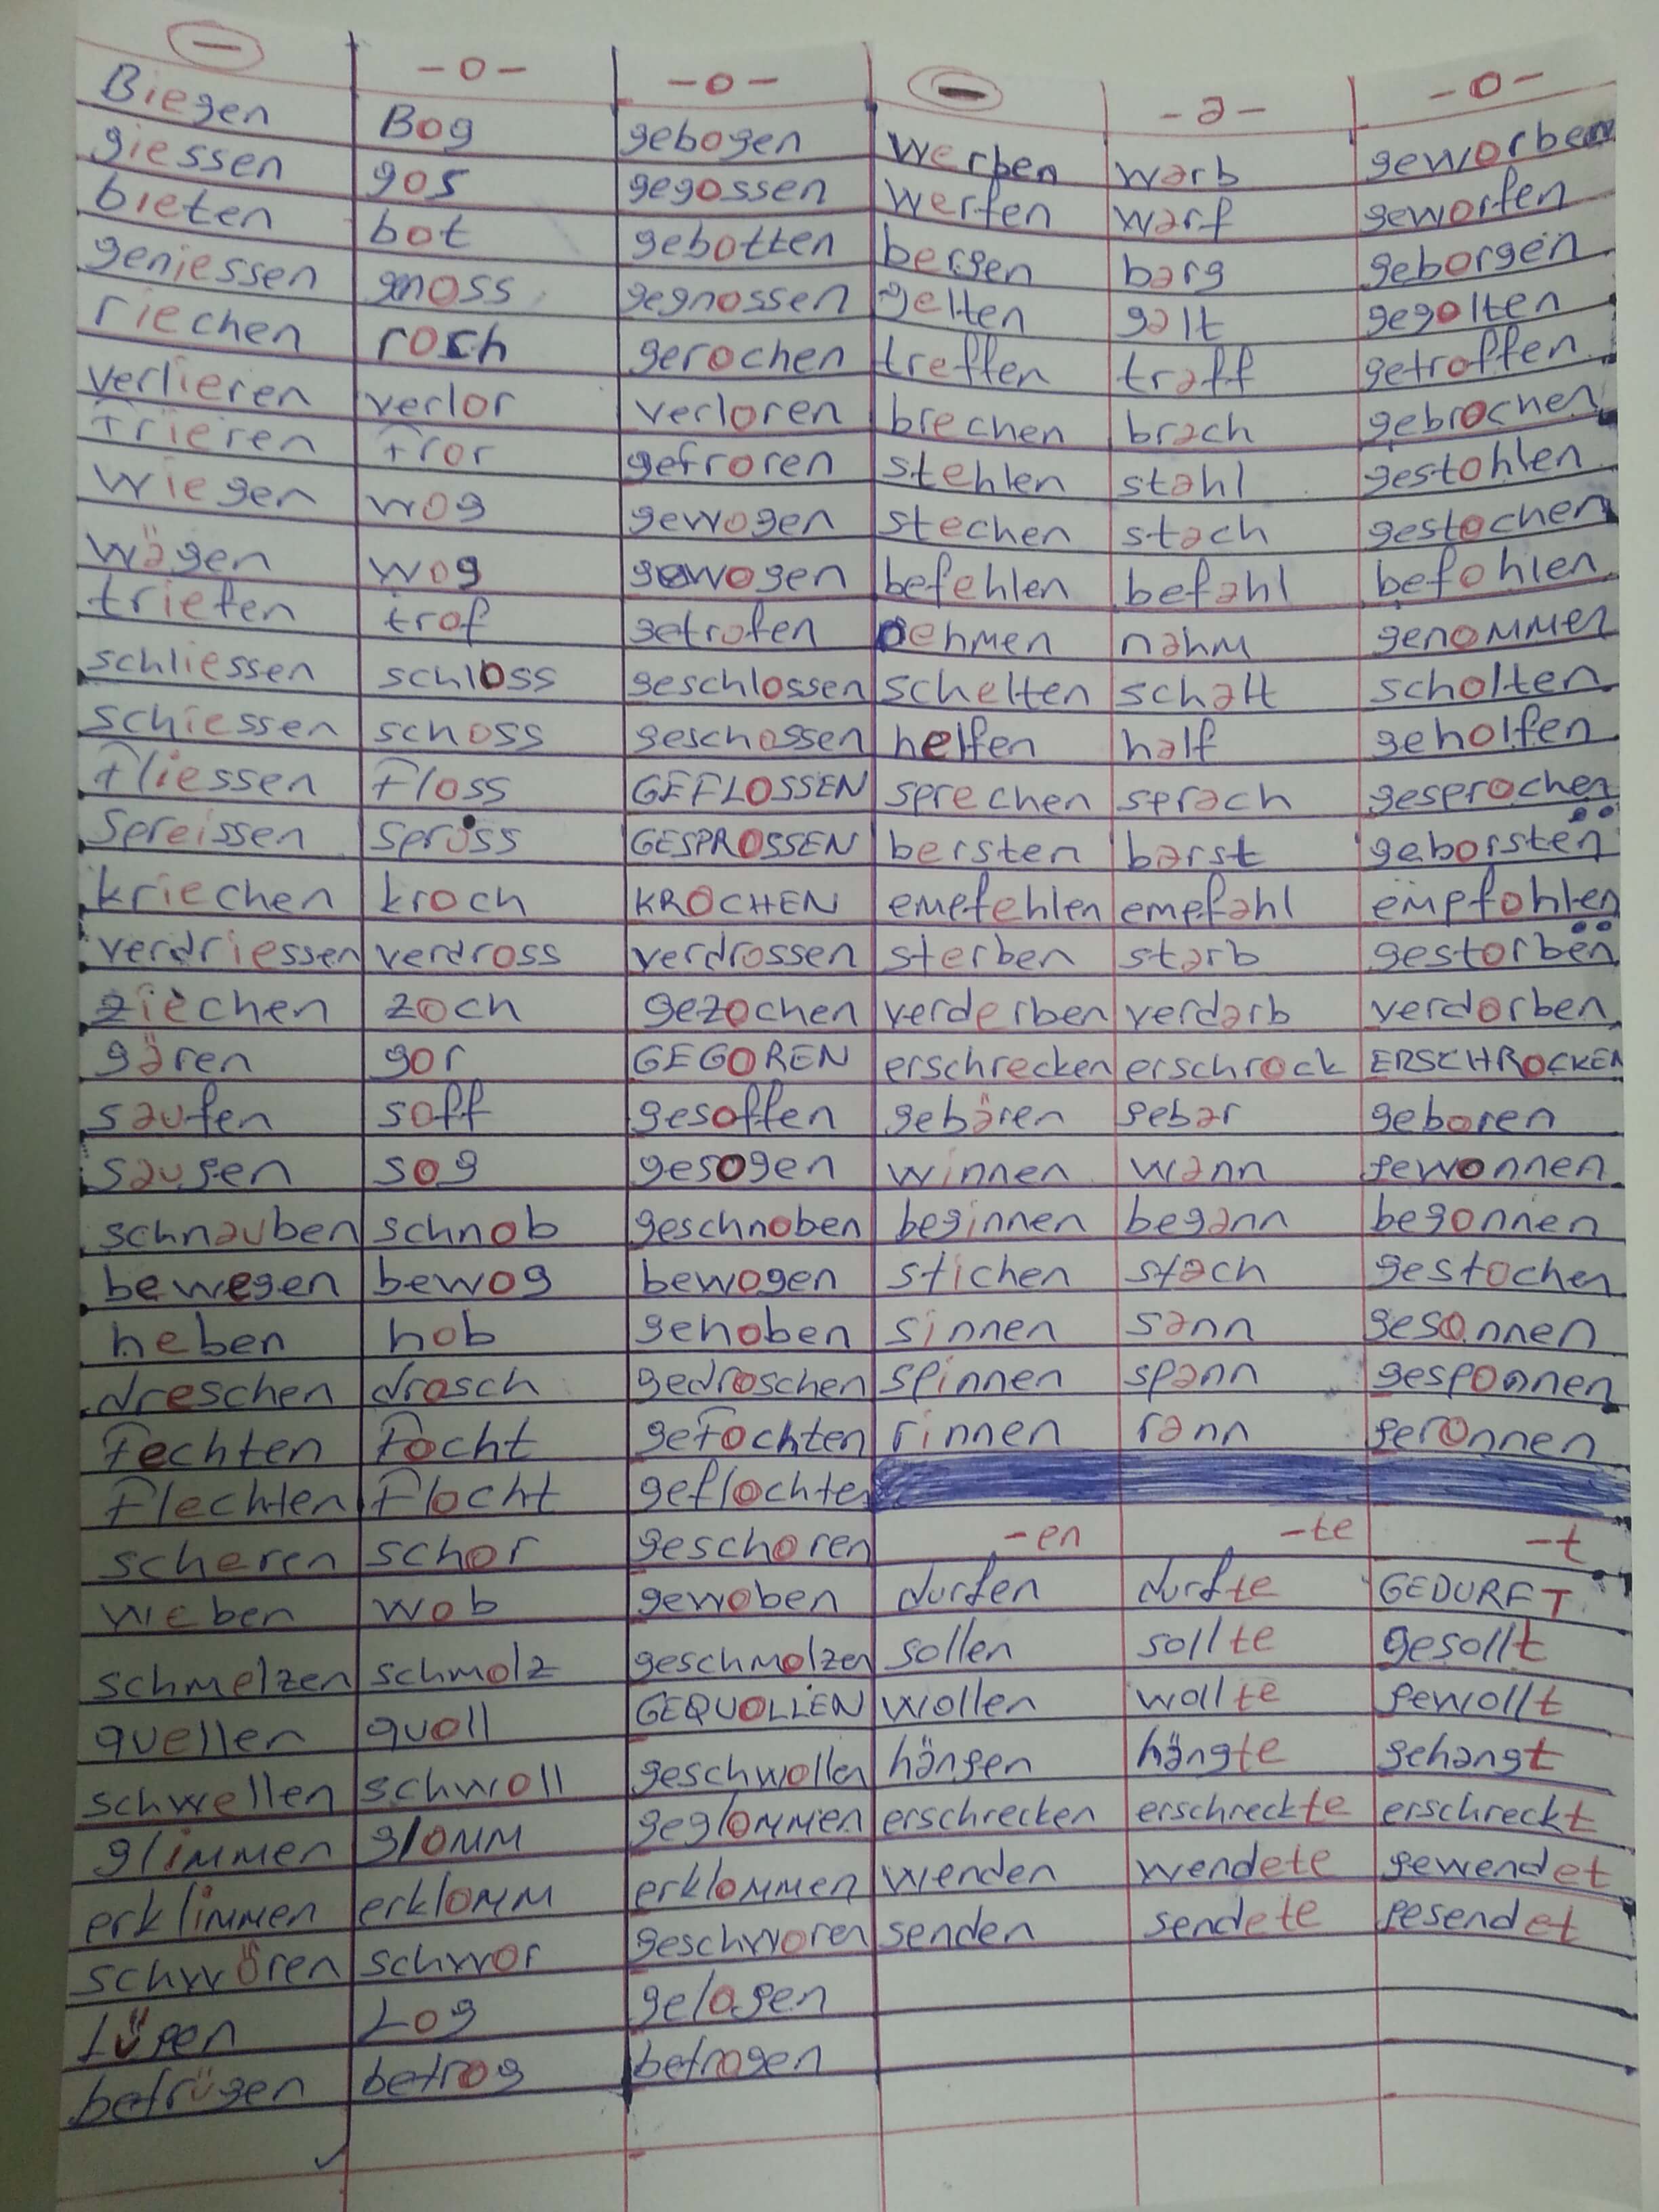 — -o- -o- — -a- -o-
Biegen Bog gebogen werben warb geworben
giessen gos gegossen werfen warf geworfen
bieten bot gebotten bergen barg geborgen
geniessen gnoss gegnossen gelten galt gegolten
riechen roch gerochen treffen traff getroffen
verlieren verlor verloren brechen brach gebrochen
frieren fror gefroren stehlen stahl gestohlen
wiegen wog gewogen stechen stach gestochen
wägen wog gewogen befehlen befahl befohlen
triefen trof getrofen nehmen nahm genommen
schliessen schloss geschlossen schelten schalt scholten
schiessen schoss geschossen helfen half geholfen
fliessen floss GEFLOSSEN sprechen sprach gesprochen
spreissen spross GESPROSSEN bersten barst geborsten
kriechen kroch KROCHEN empfehlen empfahl empfohlen
verdriessen verdross verdrossen sterben starb gestorben
ziechen zoch gezochen verderben verdarb verdorben
gären gor GEGOREN erschrecken erschrock ERSCHROCKEN
saufen soff gesoffen gebären gebar geboren
saugen sog gesogen winnen wann gewonnen
schnauben schnob geschnoben beginnen begann begonnen
bewegen bewog bewogen stichen stach gestochen
heben hob gehoben sinnen sann gesonnen
dreschen drosch gedroschen spinnen spann gesponnen
fechten focht gefochten rinnen rann geronnen
flechten flocht geflochten
scheren schor geschoren -en -te -t
weben wob gewoben durfen durfte GEDURFT
schmelzen schmolz geschmolzen sollen sollte gesollt
quellen quoll GEQUOLLEN wollen wollte gewollt
schwellen schwoll geschwollen hängen hängte gehangt
glimmen glomm geglommen erschrecken erschreckte erschreckt
erklimmen erklomm erklommen wenden wendete gewendet
schwören schwor geschworen senden sendete gesendet
Lügen Log gelogen
betrügen betrog betrogen